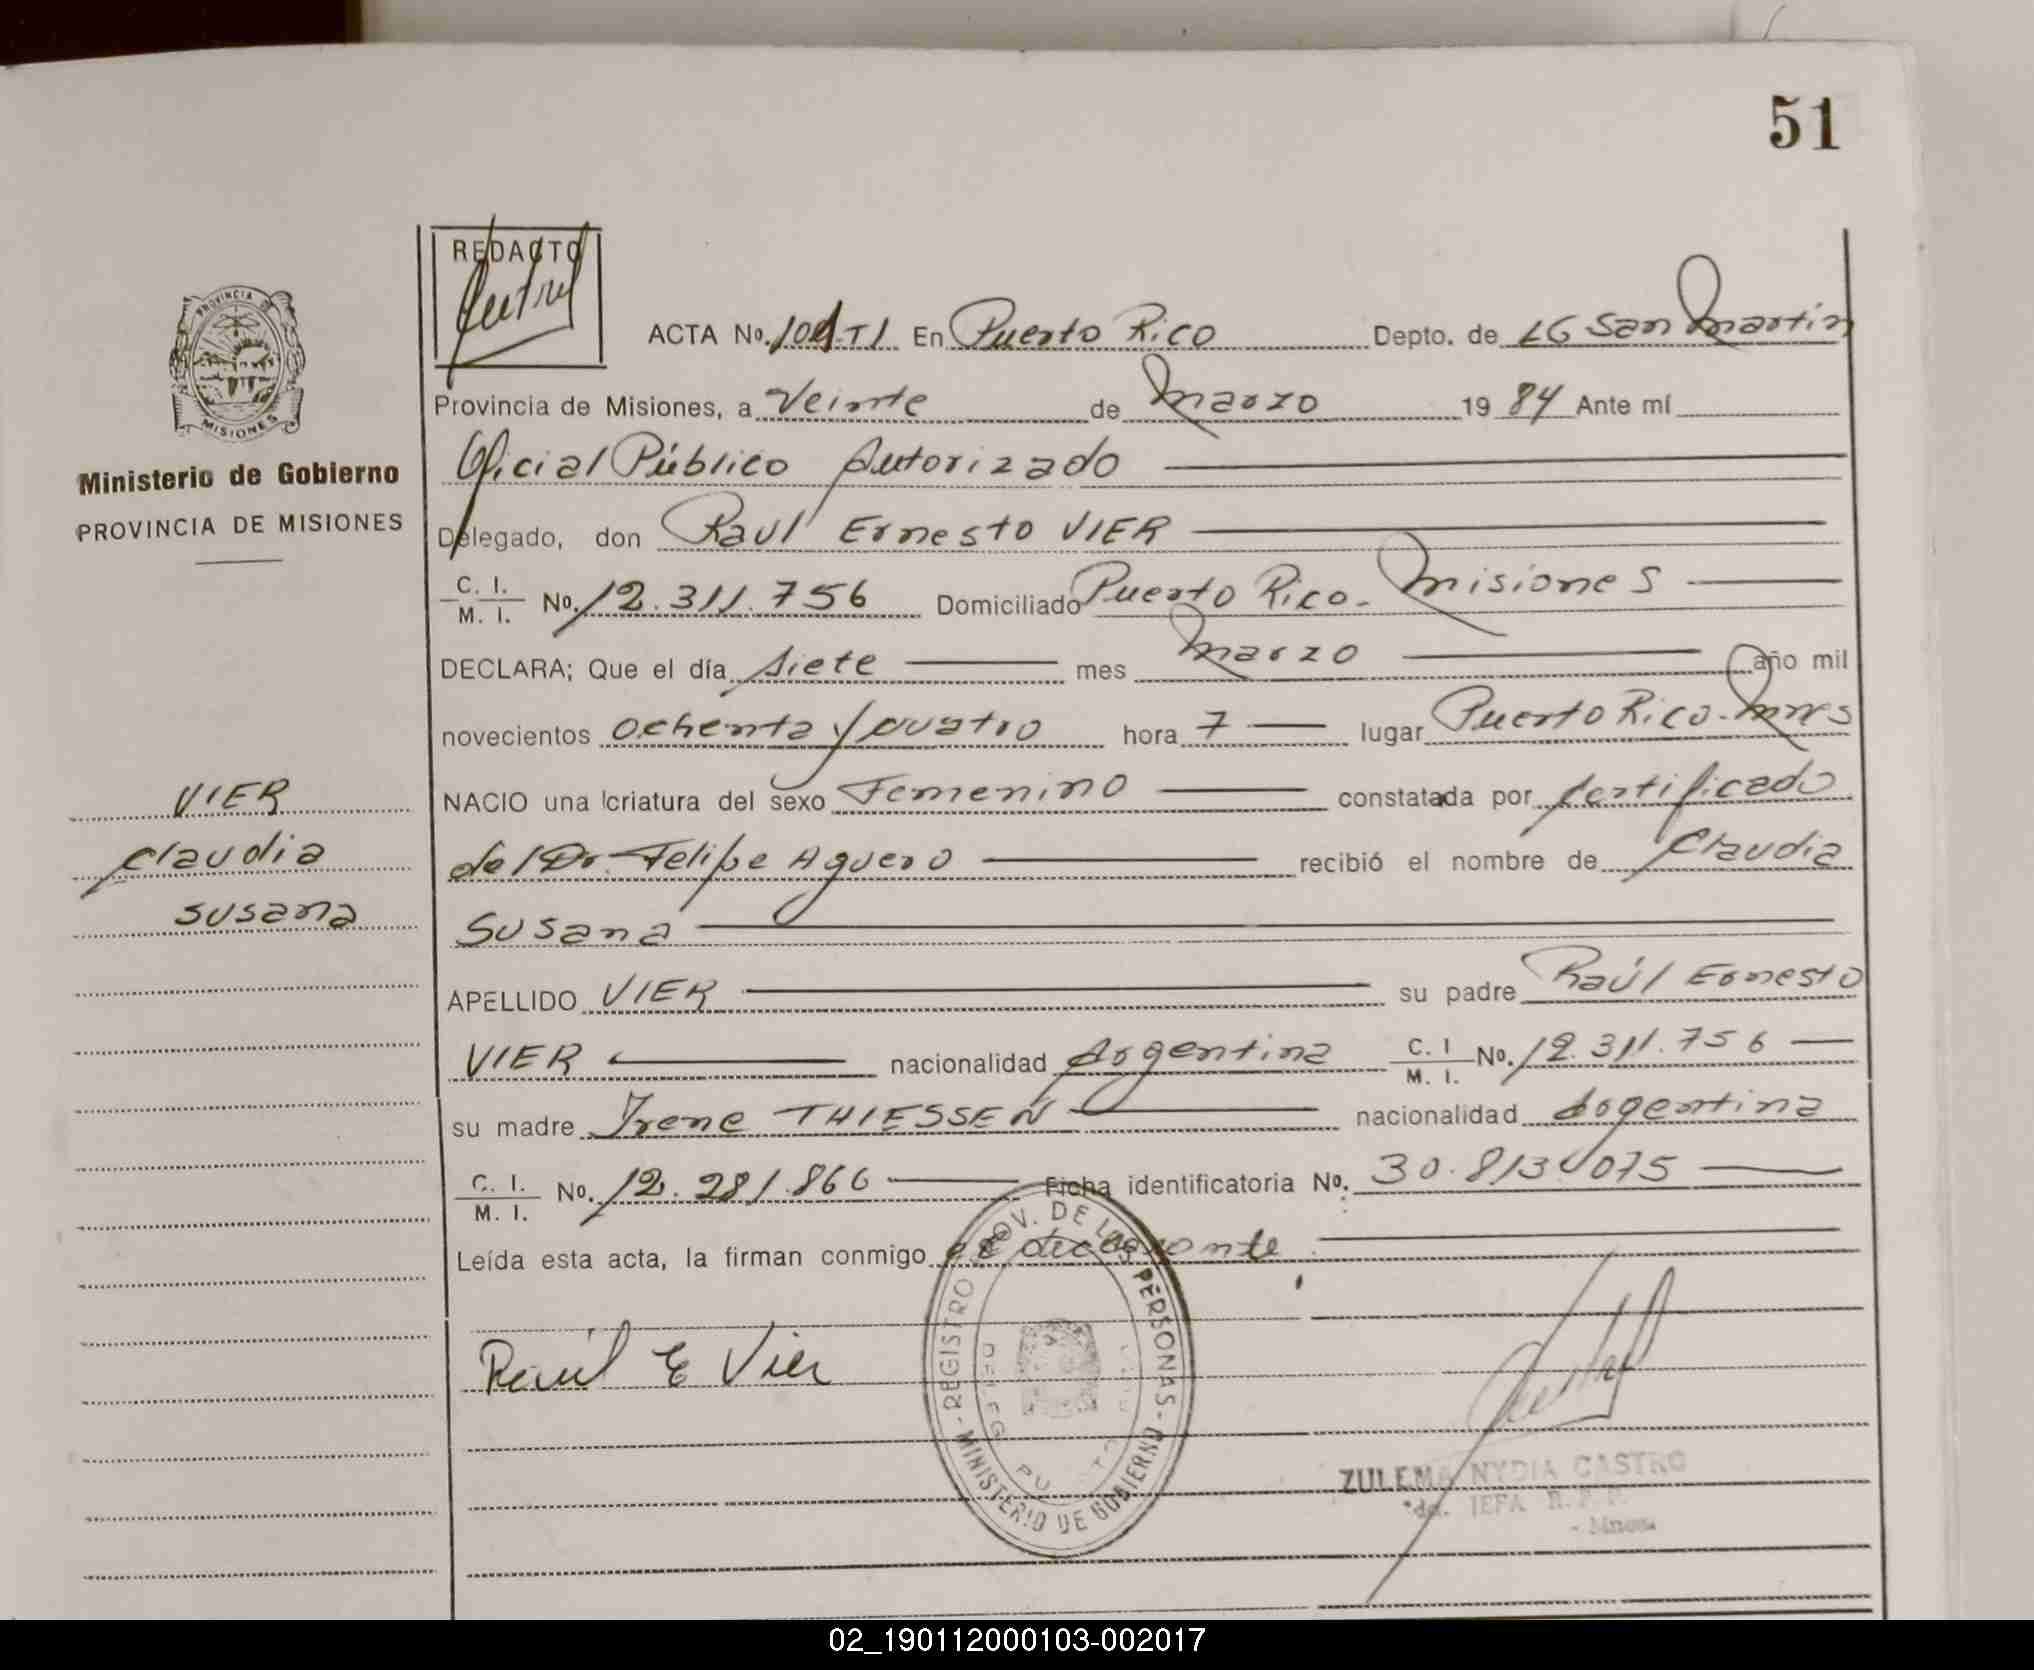 51
REDACTO
ACTA No. 101-TI En Puerto Rico Depto. de LG San Martin
PROVINCIA DE
MISIONES
Provincia de Misiones, a Veinte de marzo 19 84 Ante mí
Ministerio de Gobierno
Oficial Público Autorizado
PROVINCIA DE MISIONES
Delegado, don Raul Ernesto VIER
C. I.
M. I. No. 12.311.756 Domiciliado Puerto Rico - Misiones
DECLARA; Que el día siete mes marzo año mil
novecientos ochenta y cuatro hora 7 lugar Puerto Rico - Mnes
VIER
NACIO una criatura del sexo Femenino constatada por certificado
Claudia
del Dr. Felipe Aguero recibió el nombre de Claudia
Susana
Susana
APELLIDO VIER su padre Raúl Ernesto
VIER nacionalidad Argentina C. I
M. I. No. 12.311.756
su madre Irene THIESSEN nacionalidad Argentina
C. I.
M. I. No. 12.281.866 Ficha identificatoria No. 30.813.075
Leída esta acta, la firman conmigo el declarante
REGISTRO PROV. DE LAS PERSONAS - MINISTERIO DE GOBIERNO -
Raúl E Vier
ZULEMA NYDIA CASTRO
JEFA R. P. P.
02_190112000103-002017